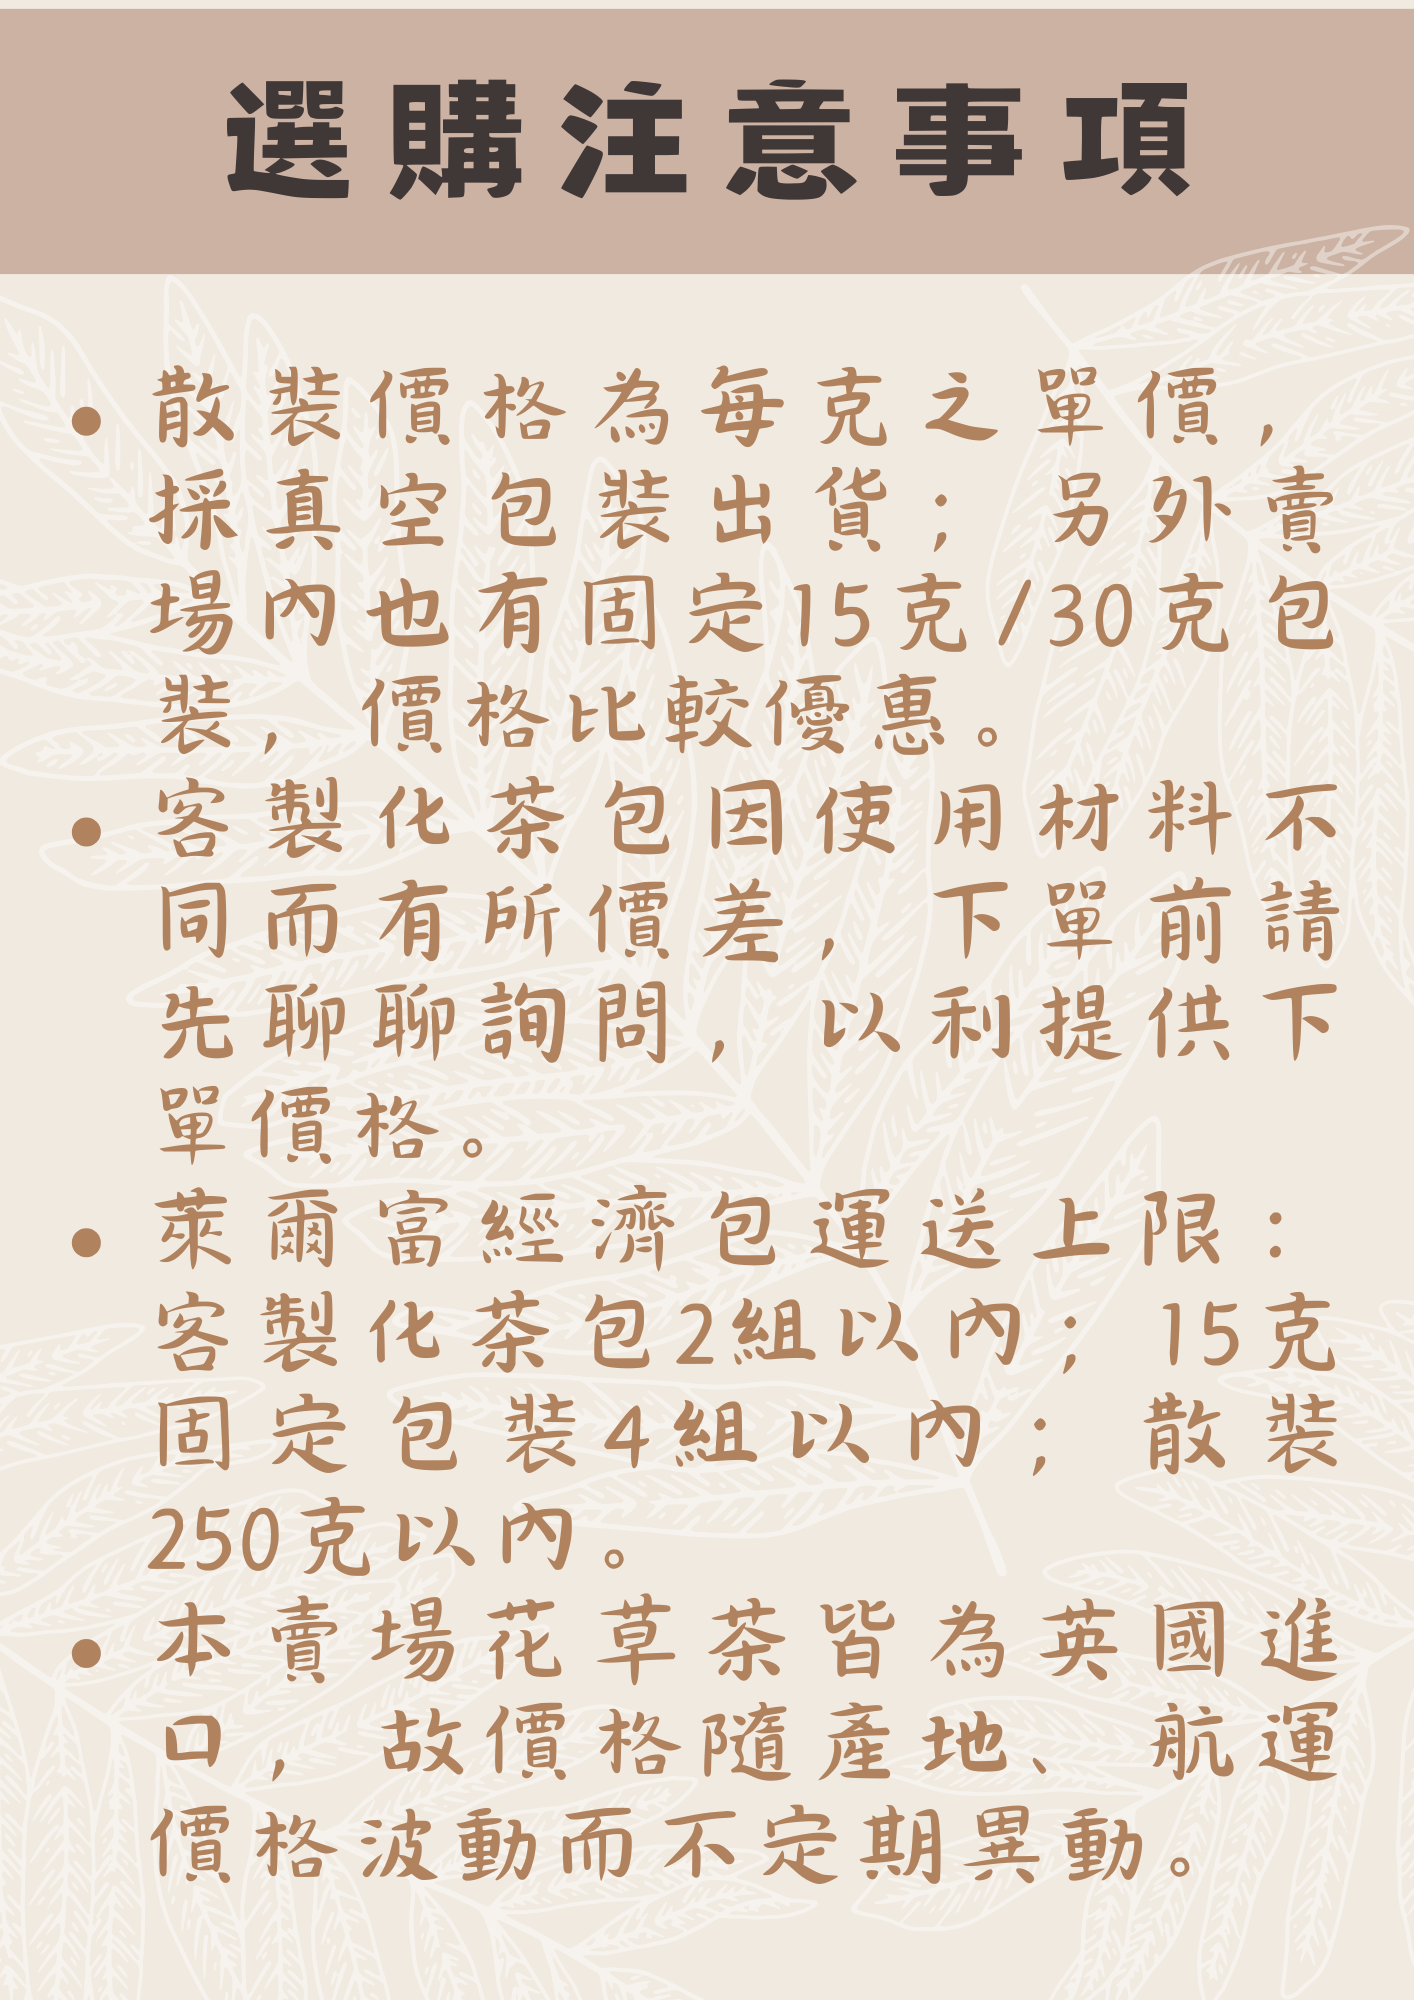 選購注意事項
• 散裝價格為每克之單價，
採真空包裝出貨；另外賣
場內也有固定15克/30克包
裝，價格比較優惠。
• 客製化茶包因使用材料不
同而有所價差，下單前請
先聊聊詢問，以利提供下
單價格。
• 萊爾富經濟包運送上限：
客製化茶包2組以內；15克
固定包裝4組以內；散裝
250克以內。
• 本賣場花草茶皆為英國進
口，故價格隨產地、航運
價格波動而不定期異動。